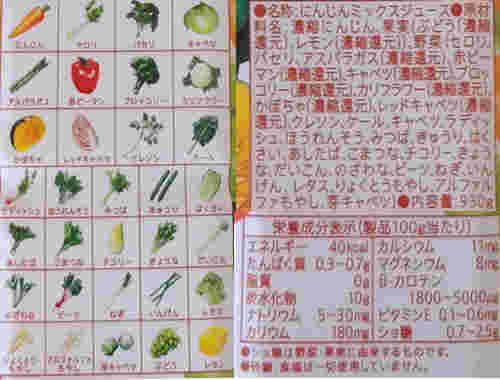 にんじん
セロリ
パセリ
キャベツ
アスパラガス
赤ピーマン
ブロッコリー
カリフラワー
かぼちゃ
レッドキャベツ
クレソン
ケール
ラディッシュ
ほうれんそう
みつば
きゅうり
はくさい
あしたば
こまつな
チコリー
さまな
だいこん
のざわな
ビーツ
ねぎ
いんげん
レタス
芽キャベツ
ぶどう
レモン
●名称:にんじんミックスジュース●原材
料名:濃縮にんじん、果実(ぶどう(濃縮
還元)、レモン(濃縮還元))、野菜(セロリ、
パセリ、アスパラガス(濃縮還元)、赤ピー
マン(濃縮還元)、キャベツ(濃縮還元)、ブロッ
コリー(濃縮還元)、カリフラワー(濃縮還元)、
かぼちゃ(濃縮還元)、レッドキャベツ(濃縮還
元)、クレソン、ケール、キャベツ、ラディッ
シュ、ほうれんそう、みつば、きゅうり、はく
さい、あしたば、こまつな、チコリ、さまな
な、だいこん、のざわな、ビーツ、ねぎ、いん
げん、レタス、りょくとうもやし、アルファル
ファもやし、芽キャベツ) ●内容量:930g
栄養成分表示(製品100g当たり)
エネルギー 40kcal
たんぱく質 0.3~0.7g
脂質 0g
炭水化物 10g
ナトリウム 5~30mg
カリウム 180mg
カルシウム 11mg
マグネシウム 8mg
β-カロテン
1800~5000μg
ビタミンE 0.1~0.6mg
ショ糖 0.7~2.9g
●ショ糖は野菜・果実に由来するものです。
●砂糖、食塩は一切使用していません。